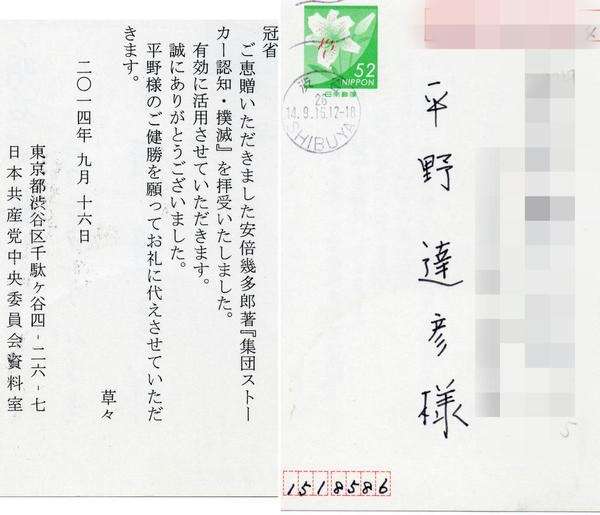 冠省
ご恵贈いただきました安倍幾多郎著『集団ストー
カー認知・撲滅』を拝受いたしました。
有効に活用させていただきます。
誠にありがとうございました。
平野様のご健勝を願ってお礼に代えさせていただ
きます。
草々
二〇一四年 九月 十六日
東京都渋谷区千駄ヶ谷四-二六-七
日本共産党中央委員会資料室
52
NIPPON
日本郵便
14.9.16.12-18
SHIBUYA
平野 達彦 様
1518586